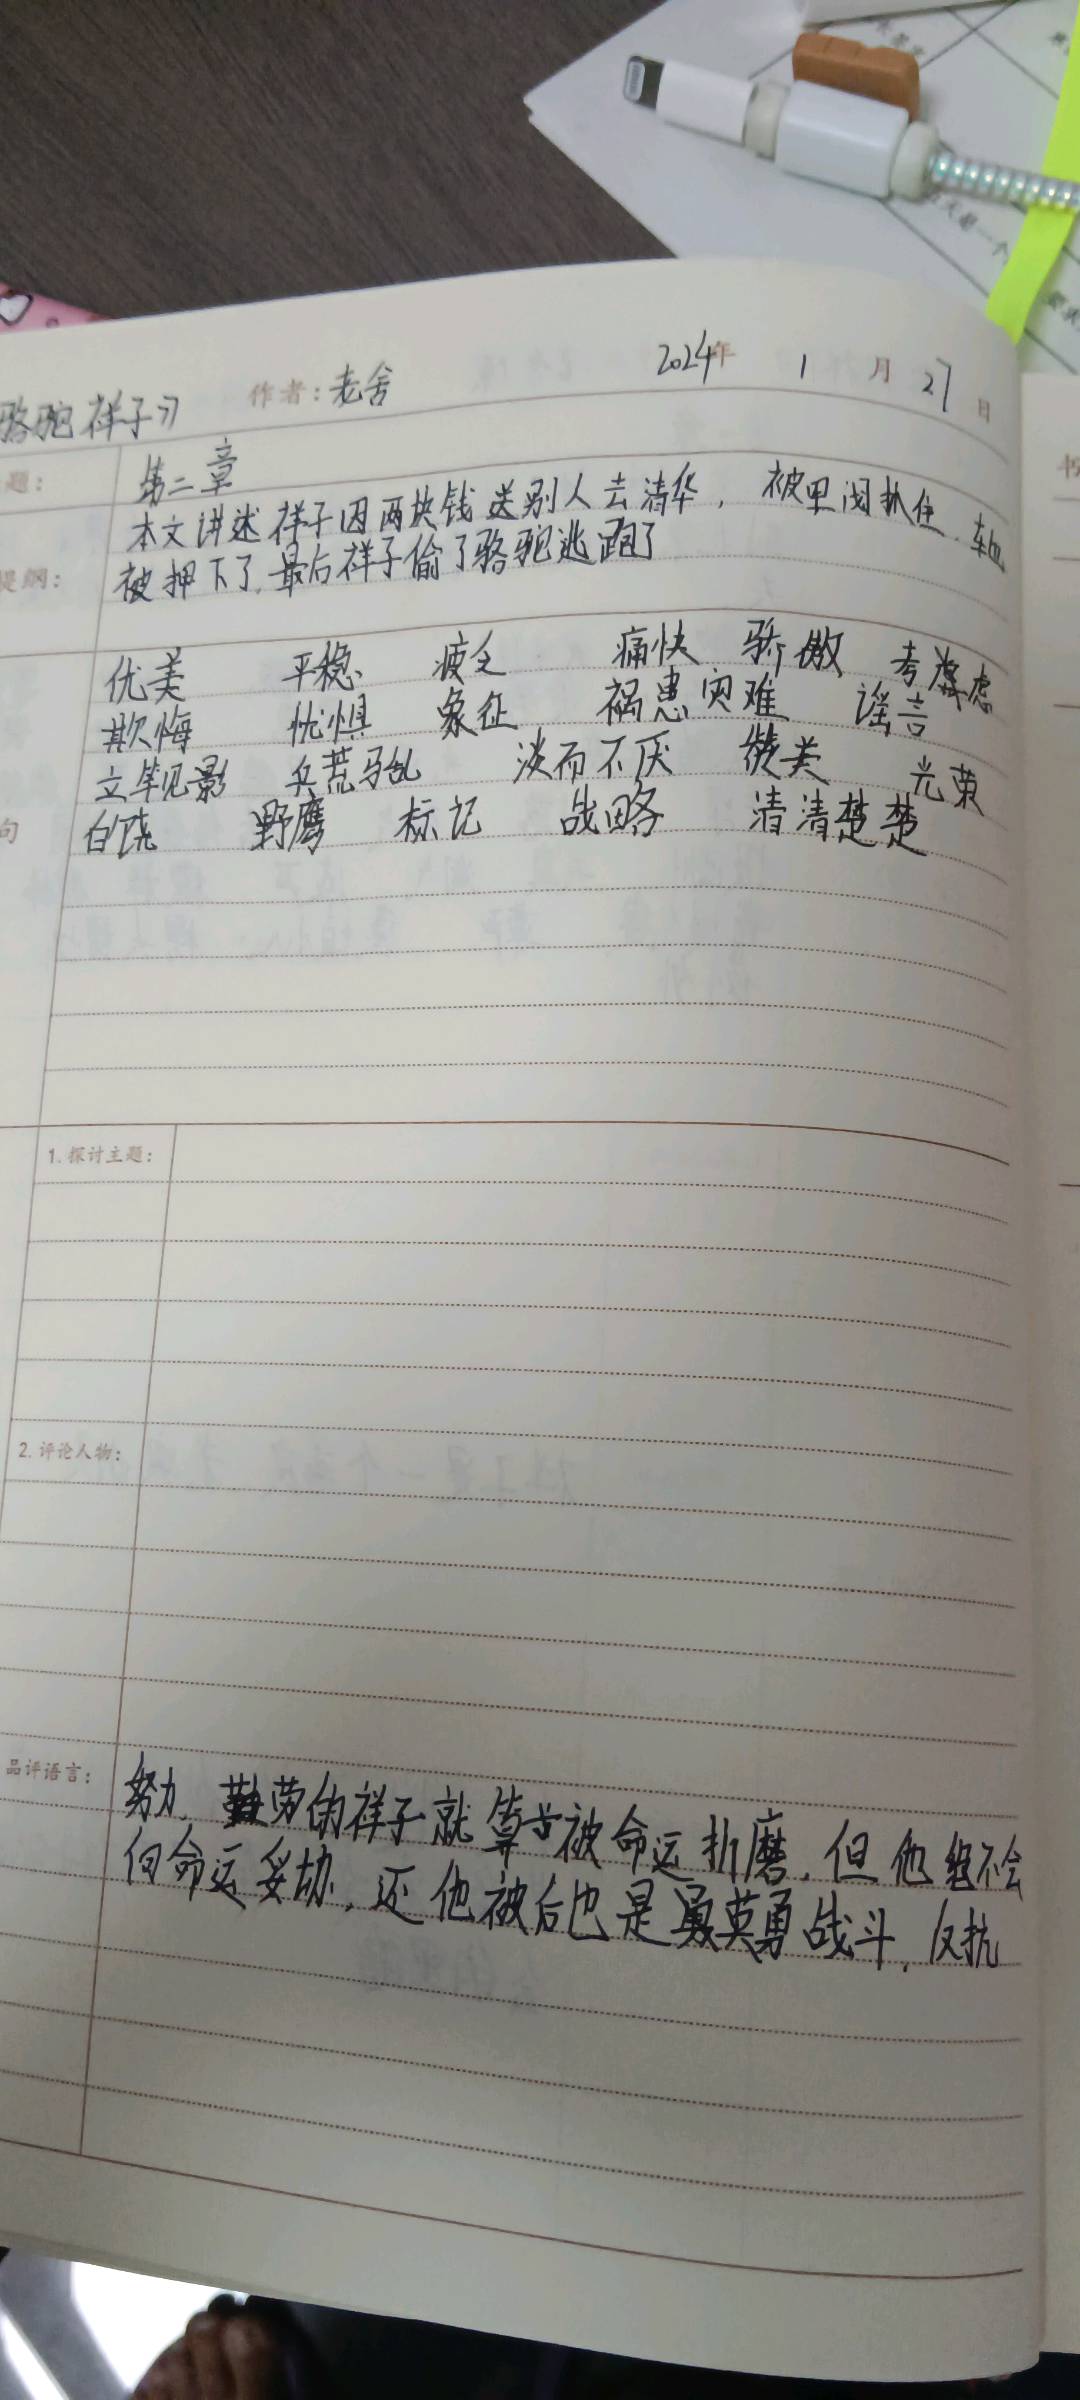 骆驼祥子》 作者：老舍 2024年 1 月 27 日
题： 第二章
本文讲述祥子因两块钱送别人去清华，被军阀抓住，车也
提纲： 被押下了，最后祥子偷了骆驼逃跑了
优美 平稳 疲乏 痛快 骄傲 考虑
欺悔 忧惧 象征 祸患灾难 谣言
立竿见影 兵荒马乱 淡而不厌 赞美 光荣
句 白饶 野鹰 标记 战略 清清楚楚
1. 探讨主题：
2. 评论人物：
品评语言： 努力、勤劳的祥子就算被命运折磨，但他绝不会
向命运妥协，还他被后也是英勇战斗，反抗